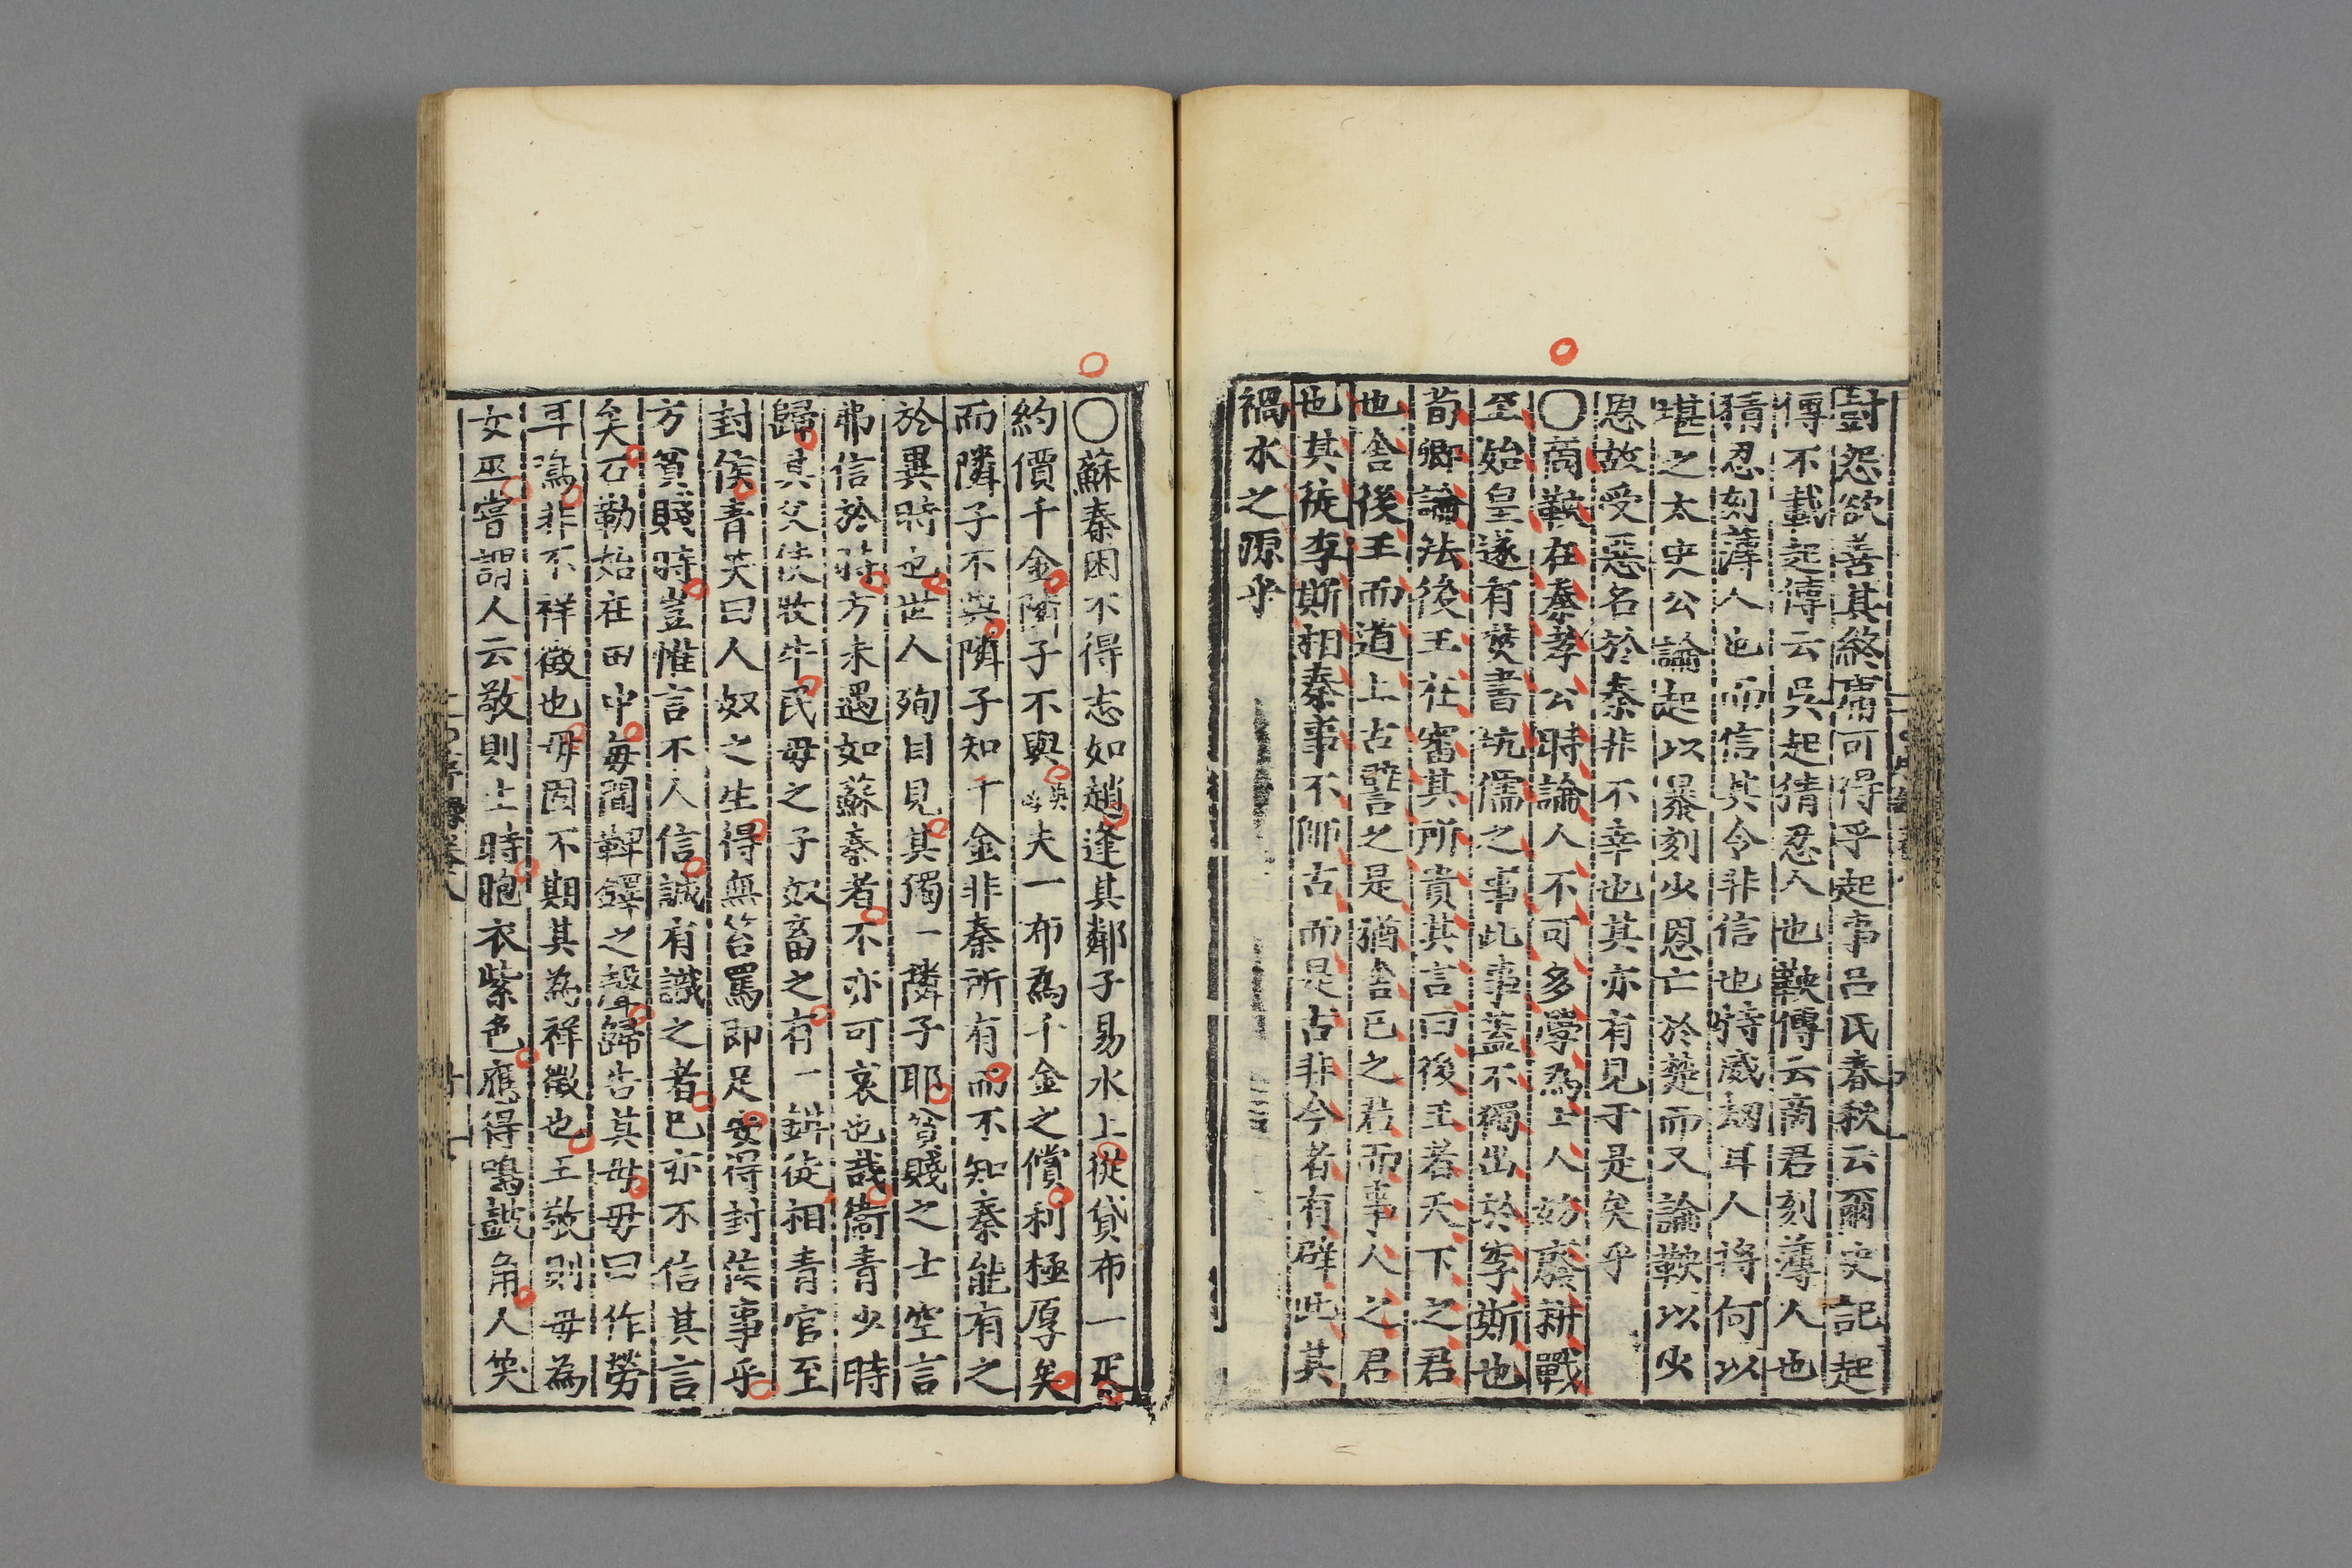 對怨欲善其終庸可得乎起事呂氏春秋云爾史記起
傳不載起傳云吳起猜忍人也鞅傳云商君刻薄人也
猜忍刻薄人也而信其令非信也特威刼耳人將何以
堪之太史公論起以暴刻少恩亡於楚而又論鞅以少
恩故受惡名於秦非不幸也其亦有見于是矣乎
〇商鞅在秦孝公時論人不可多學為士人妨廢耕戰
至始皇遂有焚書坑儒之事此事蓋不獨出於李斯也
荀卿論法後王在審其所貴其言曰後王者天下之君
也舍後王而道上古譬之是猶舍已之君而事人之君
也其徒李斯相秦事不師古而是古非今者有辟此其
禍水之源乎
〇蘇秦困不得志如趙逢其鄰子易水上從貸布一疋
約價千金隣子不與夫一布為千金之償利極厚矣
而隣子不與隣子知千金非秦所有而不知秦能有之
於異時也世人殉目見其獨一隣子耶貧賤之士空言
弗信於時方未遇如蘇秦者不亦可哀也哉衞青少時
歸其父使牧牛民母之子奴畜之有一鉗徒相青官至
封侯青笑曰人奴之生得無笞罵即足安得封侯事乎
方貧賤時豈惟言不人信誠有識之者已亦不信其言
矣石勒始在田中每聞鞞鐸之聲歸告其母母曰作勞
耳鳴非不祥徵也毋固不期其為祥徵也王敬則母為
女巫嘗謂人云敬則生時胞衣紫色應得鳴鼓角人笑